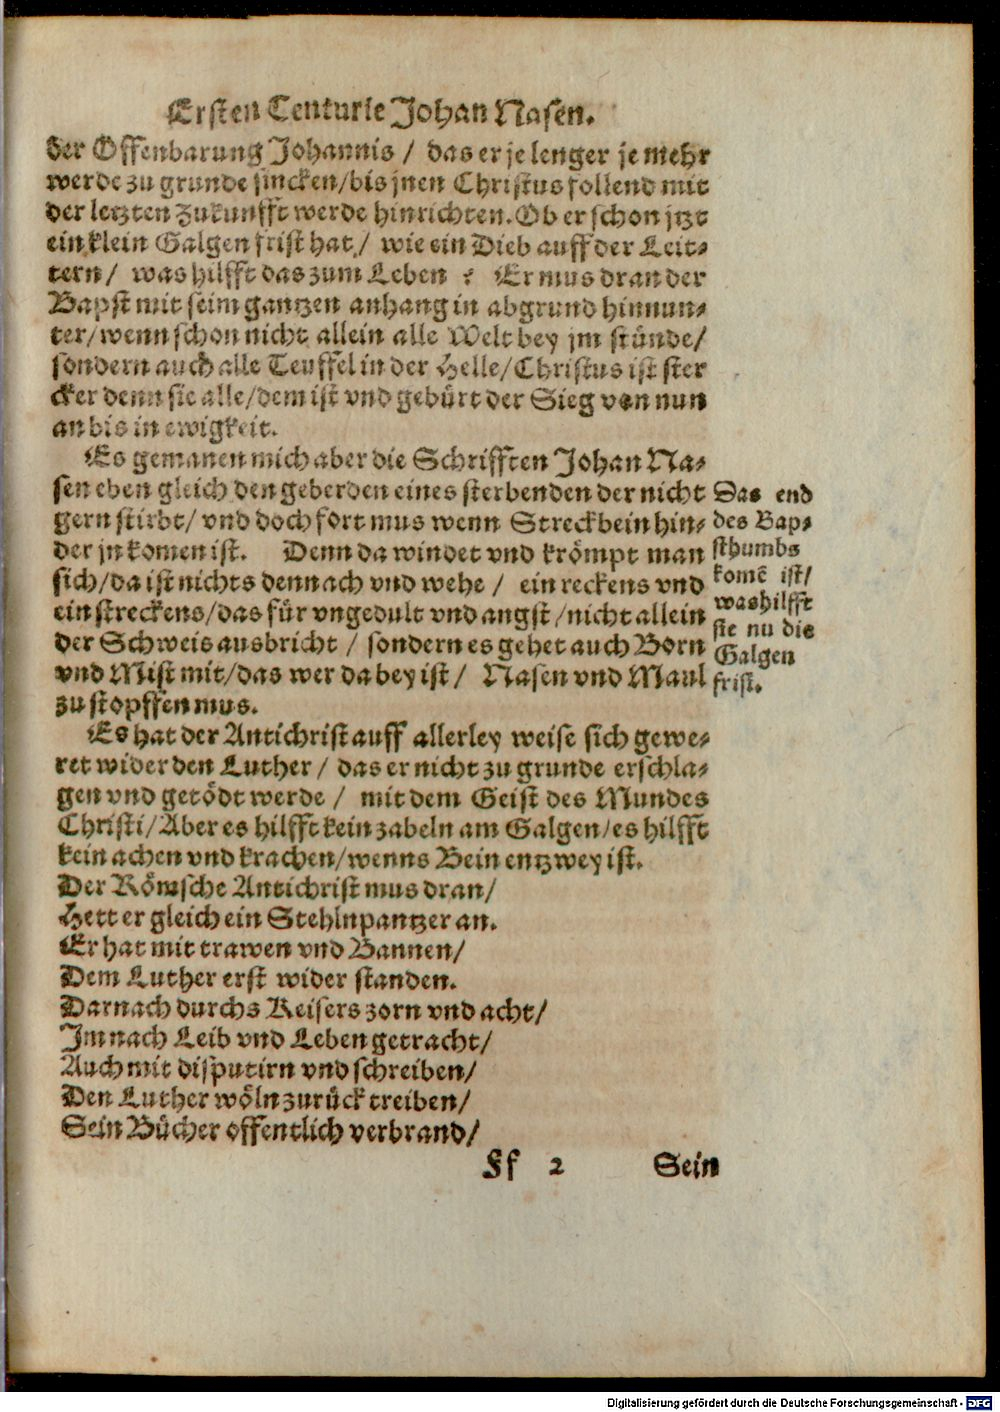 Ersten Centurie Johan Nasen.
der Offenbarung Johannis / das er je lenger je mehr
werde zu grunde sincken/bis jnen Christus follend mit
der letzten Zukunfft werde hinrichten. Ob er schon jtzt
ein klein Galgen frist hat / wie ein Dieb auff der Leit-
tern / was hilfft das zum Leben ? Er mus dran der
Bapst mit seim gantzen anhang in abgrund hinnun-
ter/wenn schon nicht allein alle Welt bey jm stünde/
sondern auch alle Teuffel in der Helle/Christus ist ster
cker denn sie alle/dem ist vnd gebürt der Sieg von nun
an bis in ewigkeit.
Es gemanen mich aber die Schrifften Johan Na-
sen eben gleich den geberden eines sterbenden der nicht
gern stirbt/ vnd doch fort mus wenn Streckbein hin-
der jn komen ist. Denn da windet vnd krömpt man
sich/da ist nichts denn ach vnd wehe / ein reckens vnd
ein streckens/das für vngedult vnd angst/nicht allein
der Schweis ausbricht / sondern es gehet auch Born
vnd Mist mit/das wer da bey ist/ Nasen vnd Maul
zu stopffen mus.
Das end
des Bap-
sthumbs
komē ist/
was hilfft
sie nu die
Galgen
frist.
Es hat der Antichrist auff allerley weise sich gewe-
ret wider den Luther / das er nicht zu grunde erschla-
gen vnd getödt werde / mit dem Geist des Mundes
Christi/Aber es hilfft kein zabeln am Galgen/es hilfft
kein achen vnd krachen/wenns Bein entzwey ist.
Der Römsche Antichrist mus dran/
Hett er gleich ein Stehlnpantzer an.
Er hat mit trawen vnd Bannen/
Dem Luther erst wider standen.
Darnach durchs Keisers zorn vnd acht/
Jm nach Leib vnd Leben getracht/
Auch mit disputirn vnd schreiben/
Den Luther wöln zurück treiben/
Sein Bücher offentlich verbrand/
Ff 2 Sein
Digitalisierung gefördert durch die Deutsche Forschungsgemeinschaft - DFG